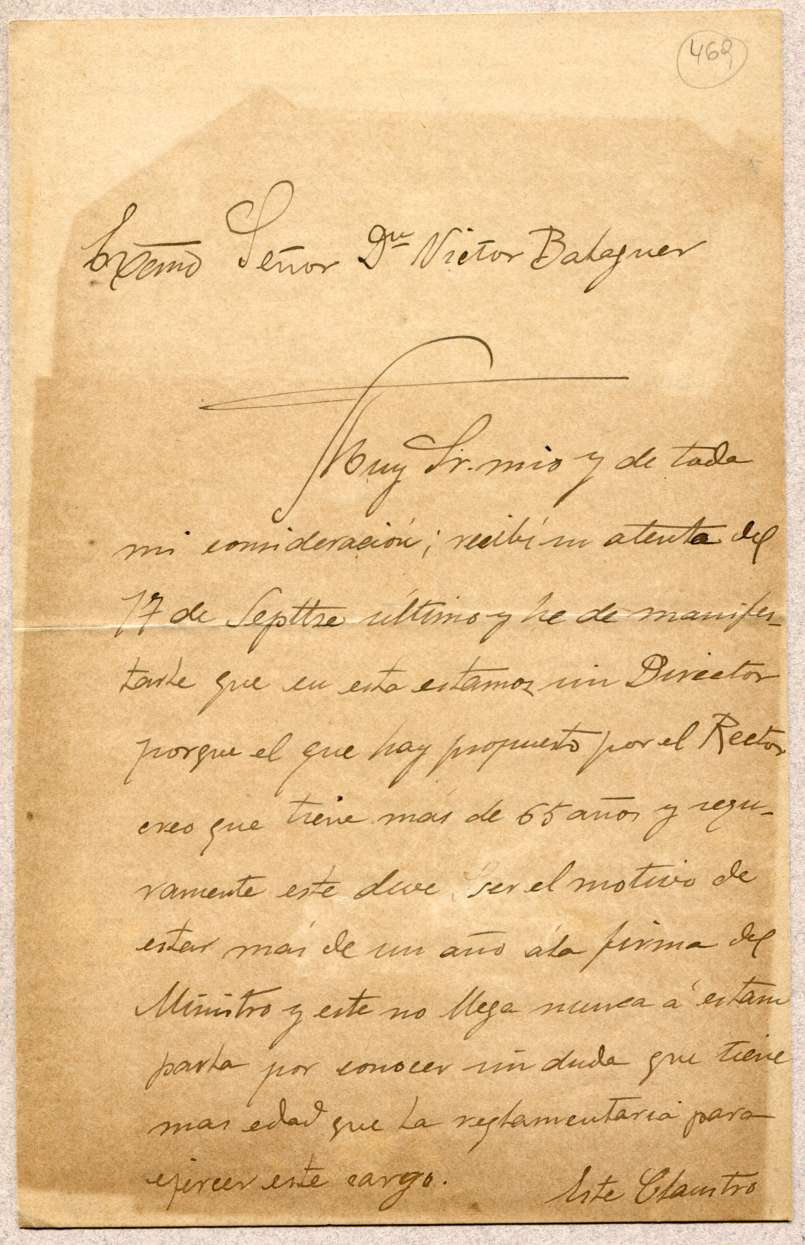 469
Excmo Señor Dn Victor Balaguer
Muy Sr. mio y de toda
mi consideración; recibí su atenta del
17 de Septbre último y he de manifes-
tarle que en esta estamos sin Director
porque el que hay propuesto por el Rector
creo que tiene más de 65 años y segu-
ramente este deve ser el motivo de
estar más de un año á la firma del
Ministro y este no llega nunca á estam
parla por conocer sin duda que tiene
mas edad que la reglamentaria para
ejercer este cargo.
Este Claustro